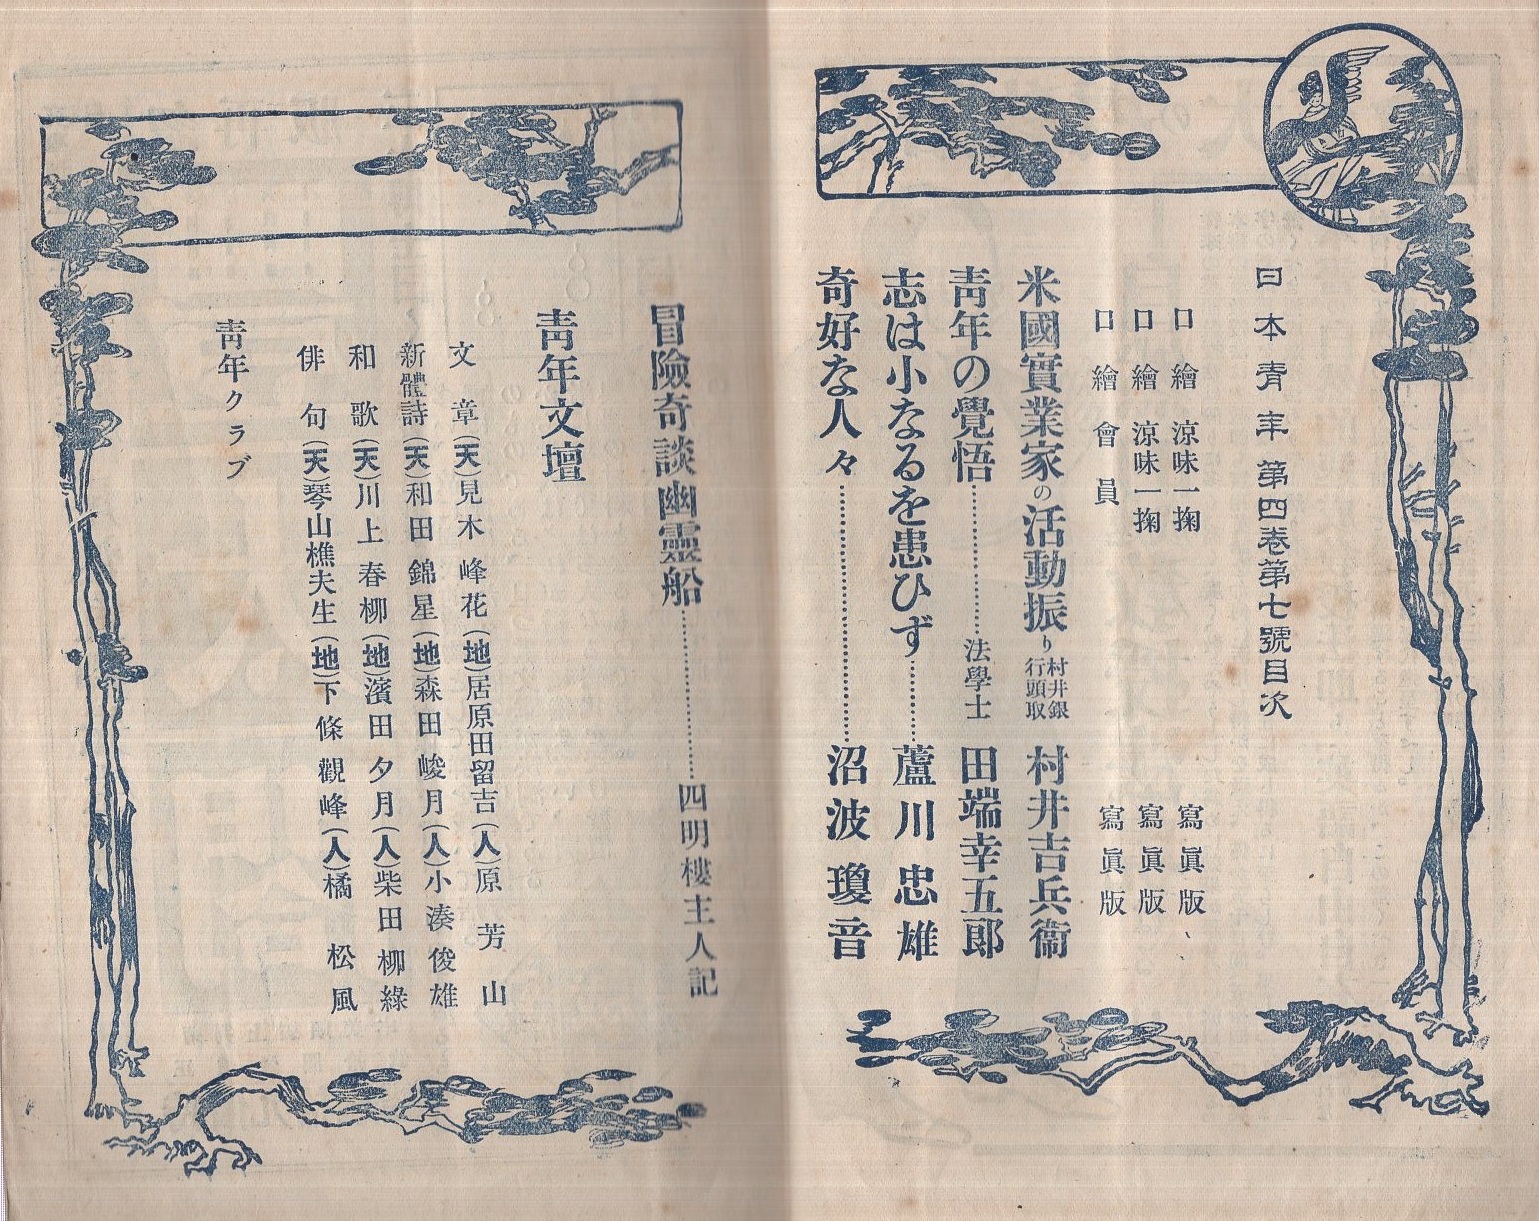 日本青年第四卷第七號目次
口繪 涼味一掬 寫眞版
口繪 涼味一掬 寫眞版
口繪 會員 寫眞版
米國實業家の活動振り 村井銀行頭取 村井吉兵衞
靑年の覺悟……………法學士 田端幸五郎
志は小なるを患ひず………蘆川忠雄
奇好な人々……………………沼波瓊音
冒險奇談幽靈船……………四明樓主人記
靑年文壇
文章(天)見木峰花(地)居原田留吉(人)原芳山
新體詩(天)和田錦星(地)森田峻月(人)小湊俊雄
和歌(天)川上春柳(地)濱田夕月(人)柴田柳綠
俳句(天)琴山樵夫生(地)下條觀峰(人)橘松風
靑年クラブ